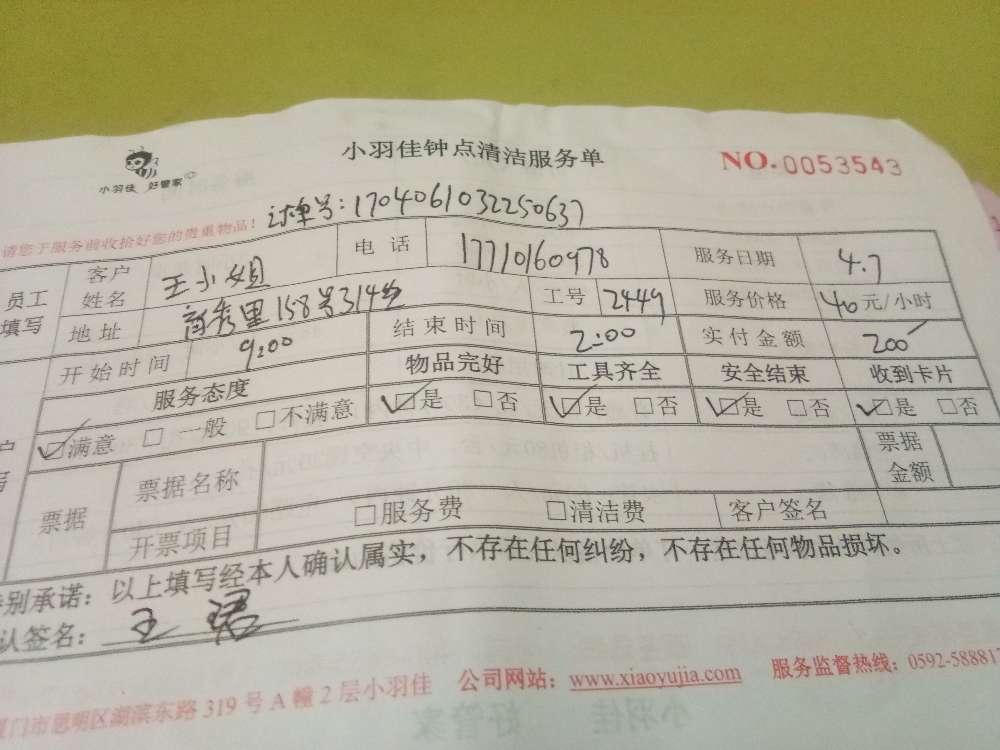 小羽佳 好管家
小羽佳钟点清洁服务单
NO.0053543
请您于服务前收拾好您的贵重物品!
订单号:1704061032250637
员工填写
客户姓名 王小姐 电话 17710160978 服务日期 4.7
地址 158号314 工号 2449 服务价格 40元/小时
开始时间 9:00 结束时间 2:00 实付金额 200
服务态度 物品完好 工具齐全 安全结束 收到卡片
☑满意 □一般 □不满意 ☑是 □否 ☑是 □否 ☑是 □否 ☑是 □否
票据 票据名称 票据金额
开票项目 □服务费 □清洁费 客户签名
别承诺:以上填写经本人确认属实,不存在任何纠纷,不存在任何物品损坏。
认签名:王珺
门市思明区湖滨东路319号A幢2层小羽佳 公司网站:www.xiaoyujia.com 服务监督热线:0592-588817